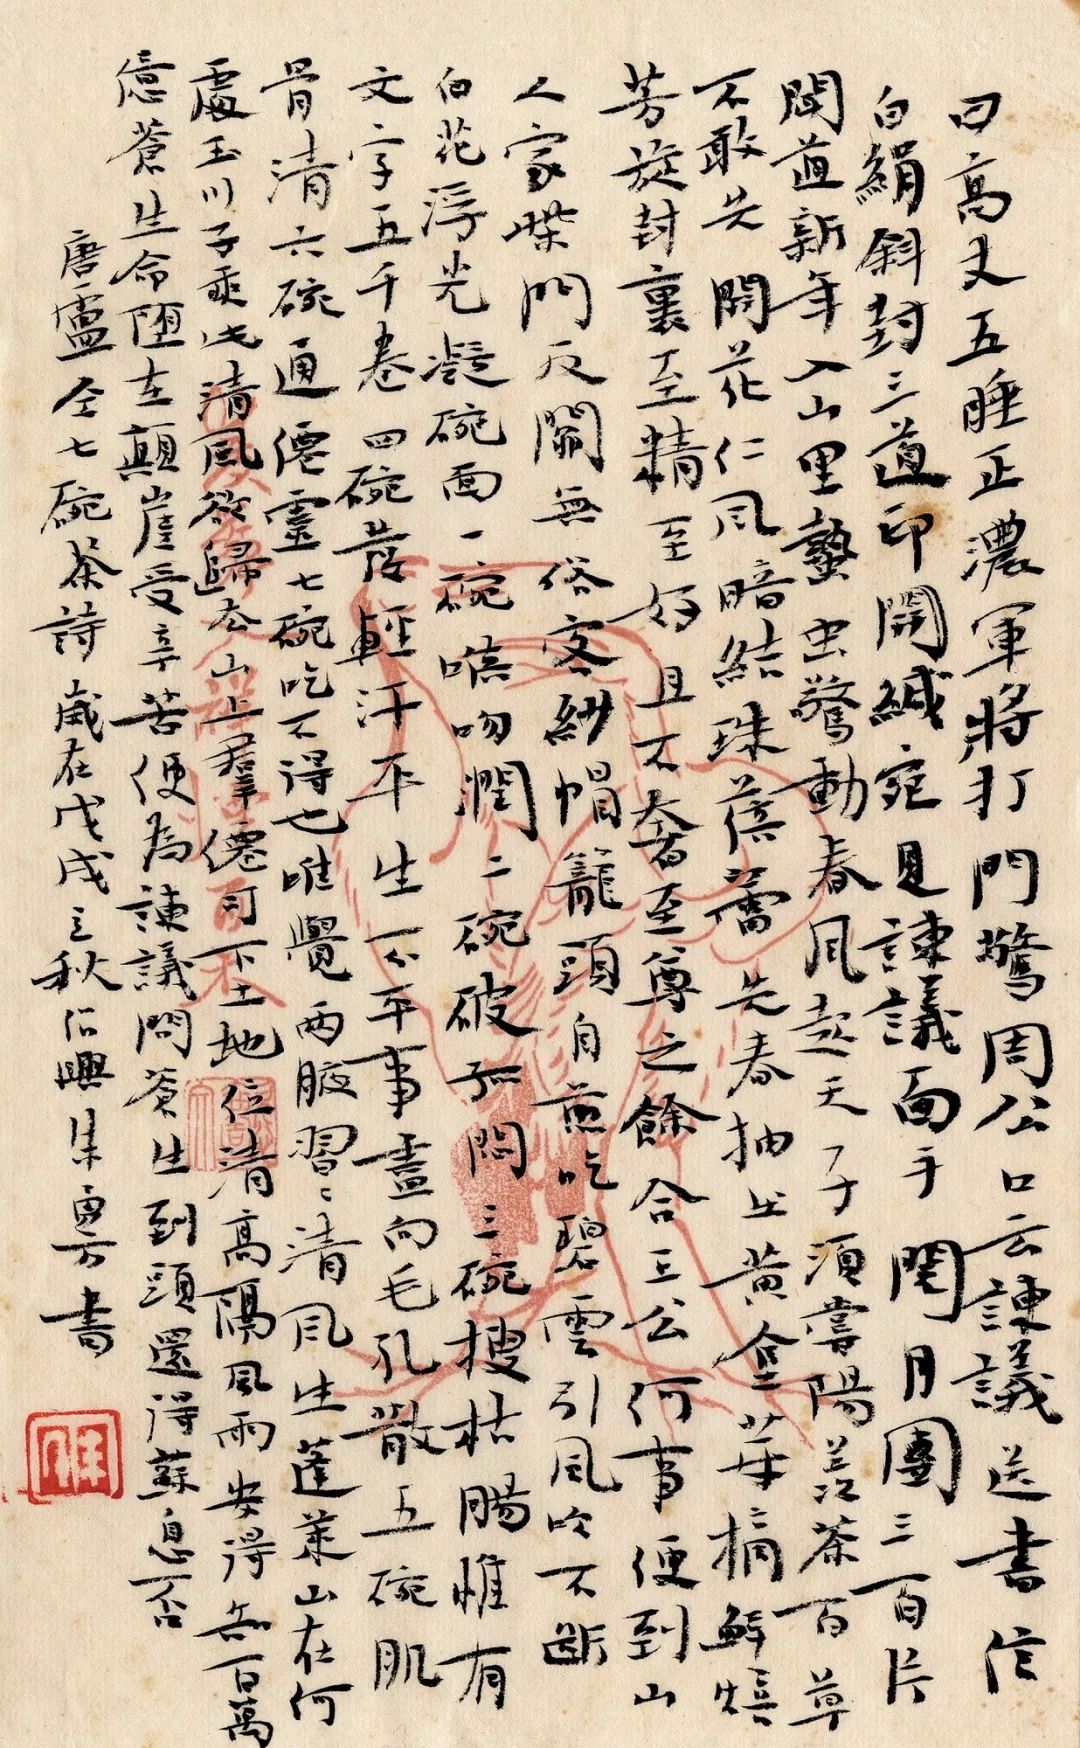 日高丈五睡正濃軍將打門驚周公口云諫議送書信
白絹斜封三道印開緘宛見諫議面手閱月團三百片
聞道新年入山里蟄虫驚動春風起天子須嘗陽羨茶百草
不敢先開花仁風暗結珠蓓蕾先春抽出黃金芽摘鮮焙
芳旋封裹至精至好且不奢至尊之餘合王公何事便到山
人家柴門反關無俗客紗帽籠頭自煎吃碧雲引風吹不斷
白花浮光凝碗面一碗喉吻潤二碗破孤悶三碗搜枯腸惟有
文字五千卷四碗發輕汗平生不平事盡向毛孔散五碗肌
骨清六碗通僊靈七碗吃不得也唯覺兩腋習〻清風生蓬萊山在何
處玉川子乘此清風欲歸去山上羣僊司下土地位清高隔風雨安得知百萬
億蒼生命墮在顛崖受辛苦便為諫議問蒼生到頭還得蘇息否
唐盧仝七碗茶詩歲在戊戌之秋 興朱勇方書